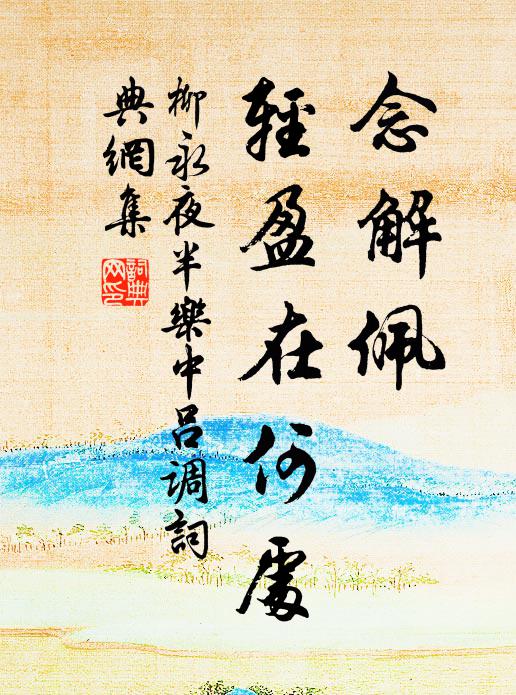 念解佩
輕盈在何處
柳永夜半樂中呂調詞
典網集
詞典
网印